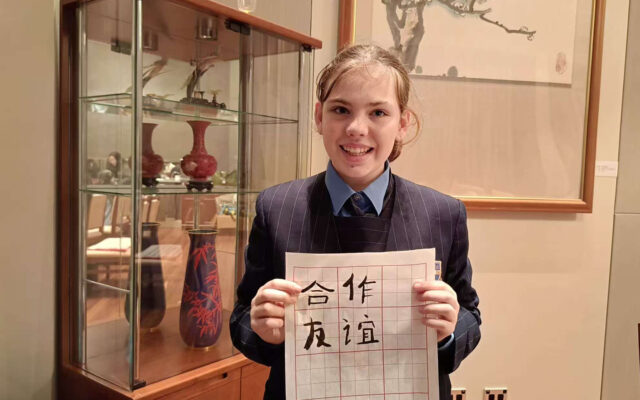 合作
友谊